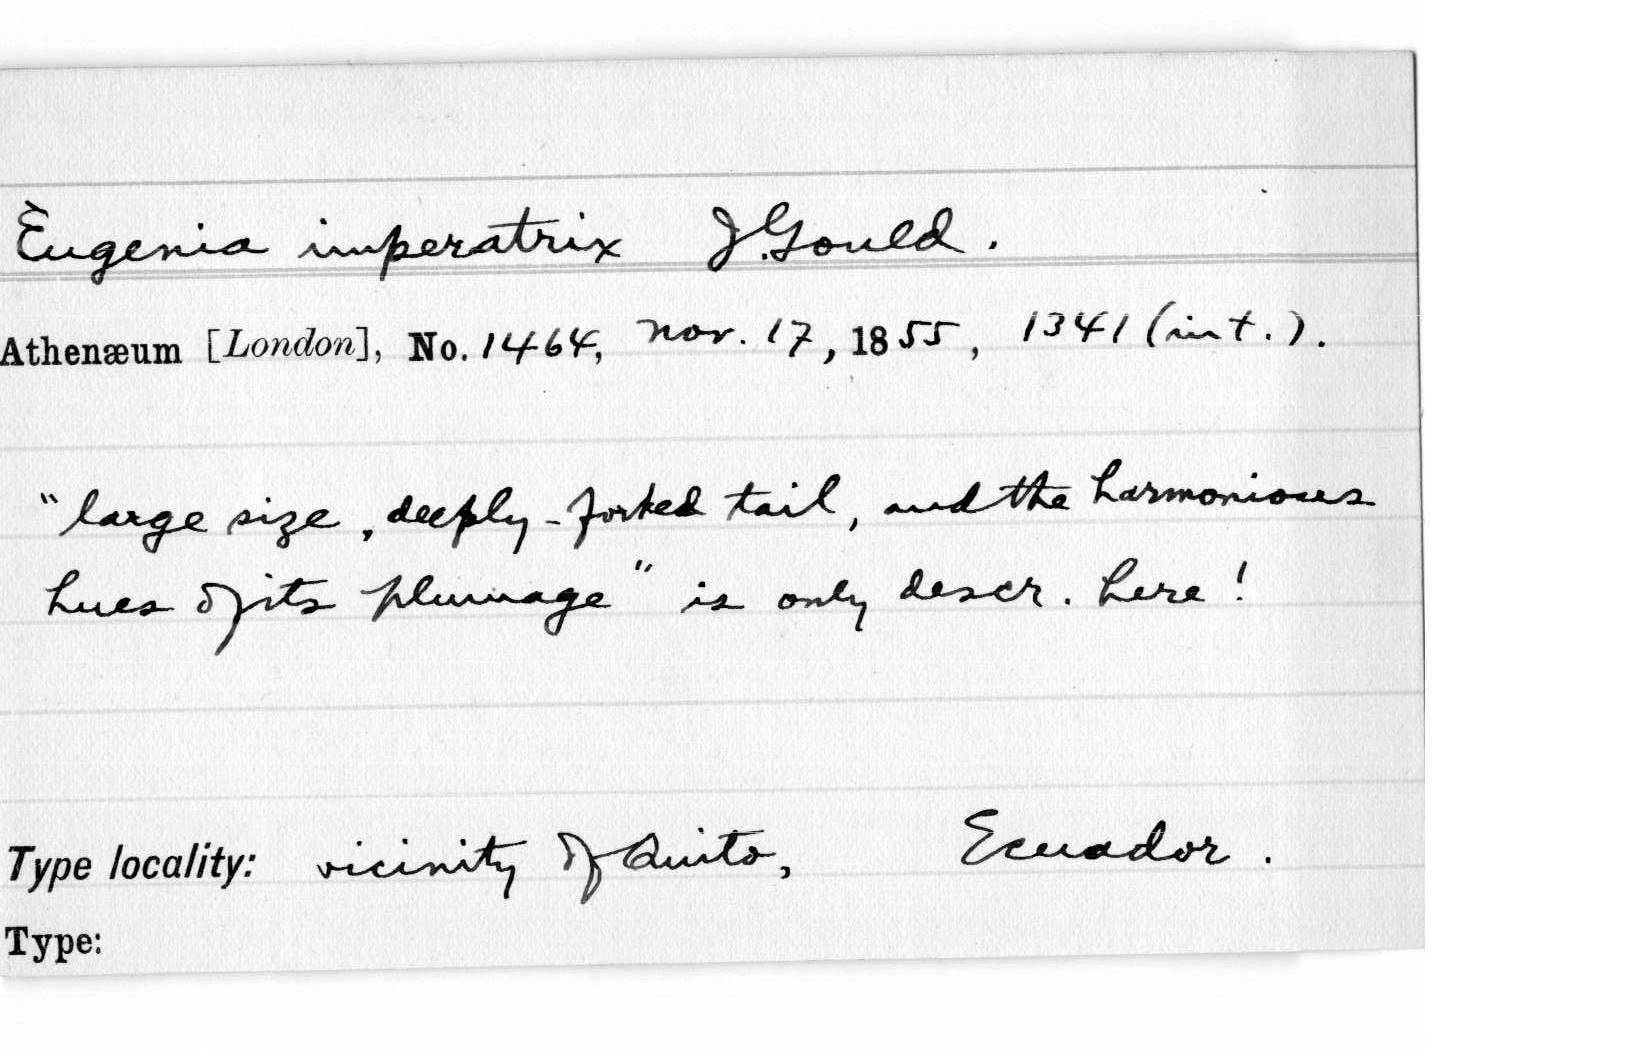 Eugenia imperatrix J. Gould.
Athenæum [London], No. 1464, Nov. 17, 1855, 1341 (int.).
"large size, deeply-forked tail, and the harmonious
hues of its plumage" is only descr. here!
Type locality: vicinity of Quito, Ecuador.
Type: